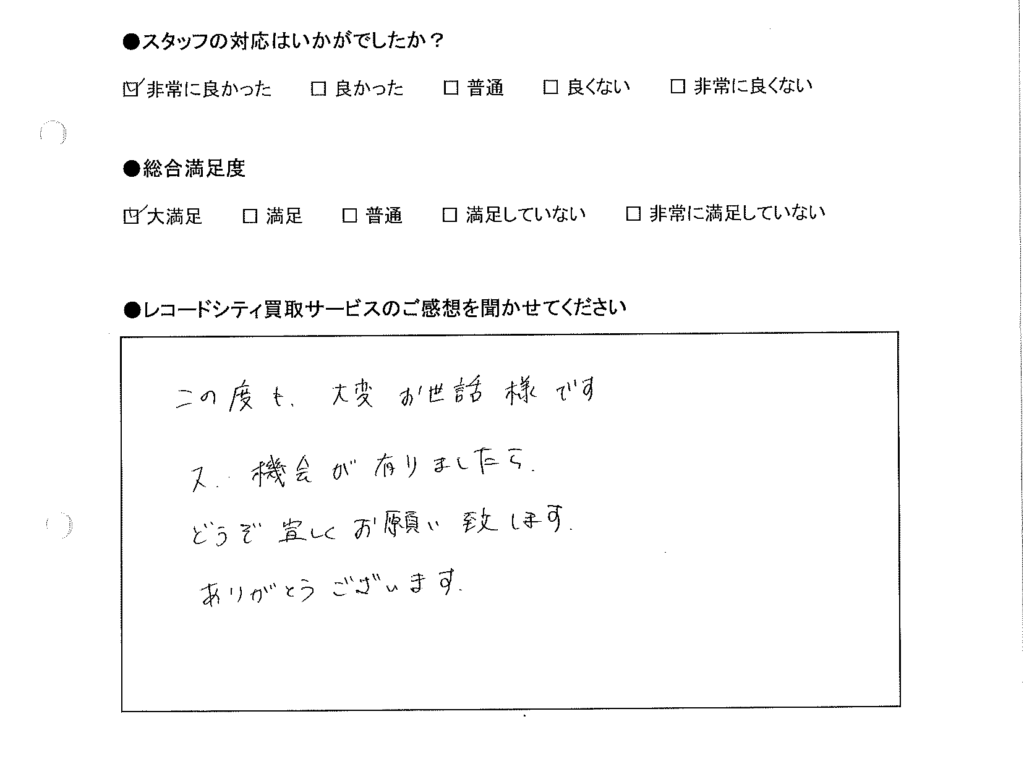 ●スタッフの対応はいかがでしたか？
☑非常に良かった　□ 良かった　□ 普通　□ 良くない　□ 非常に良くない
●総合満足度
☑大満足　□ 満足　□ 普通　□ 満足していない　□ 非常に満足していない
●レコードシティ買取サービスのご感想を聞かせてください
この度も、大変お世話様です
又、機会が有りましたら、
どうぞ宜しくお願い致します。
ありがとうございます。